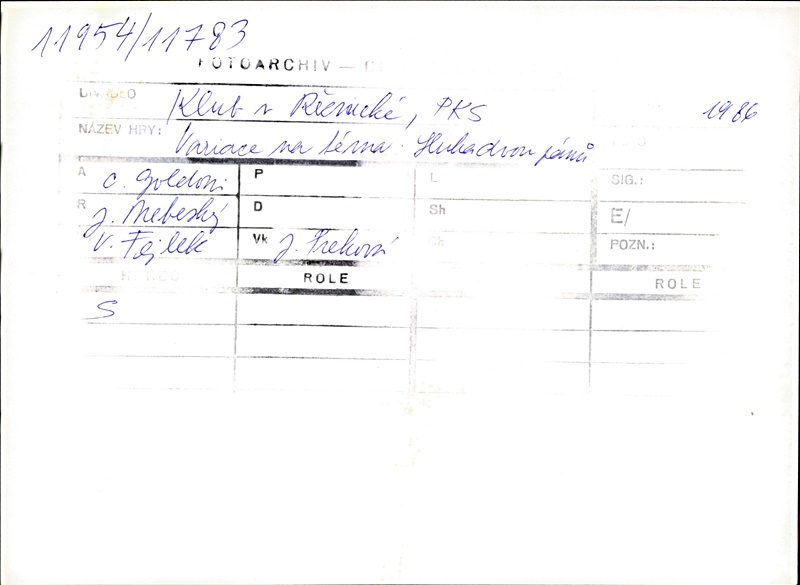 11954/11783
FOTOARCHIV —
DIVADLO Klub v Řeznické, PKS 1986
NÁZEV HRY: Variace na téma: Sluha dvou pánů
A C. Goldoni P L SIG.:
R J. Nebeský D Sh E/
V. Fejlek Vk J. Preková Ch POZN.:
ROLE ROLE
S